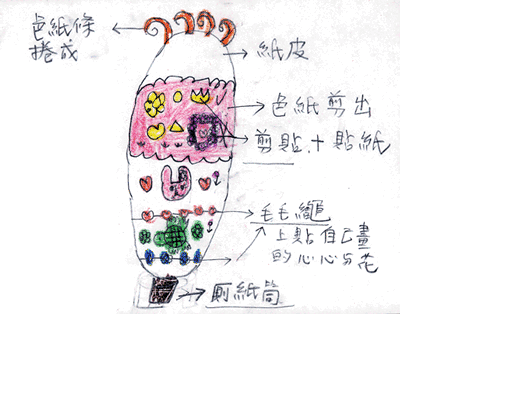 色紙條
捲成
紙皮
色紙剪出
剪貼十貼紙
毛毛繩
上點自己畫
的心心与花
厠紙筒